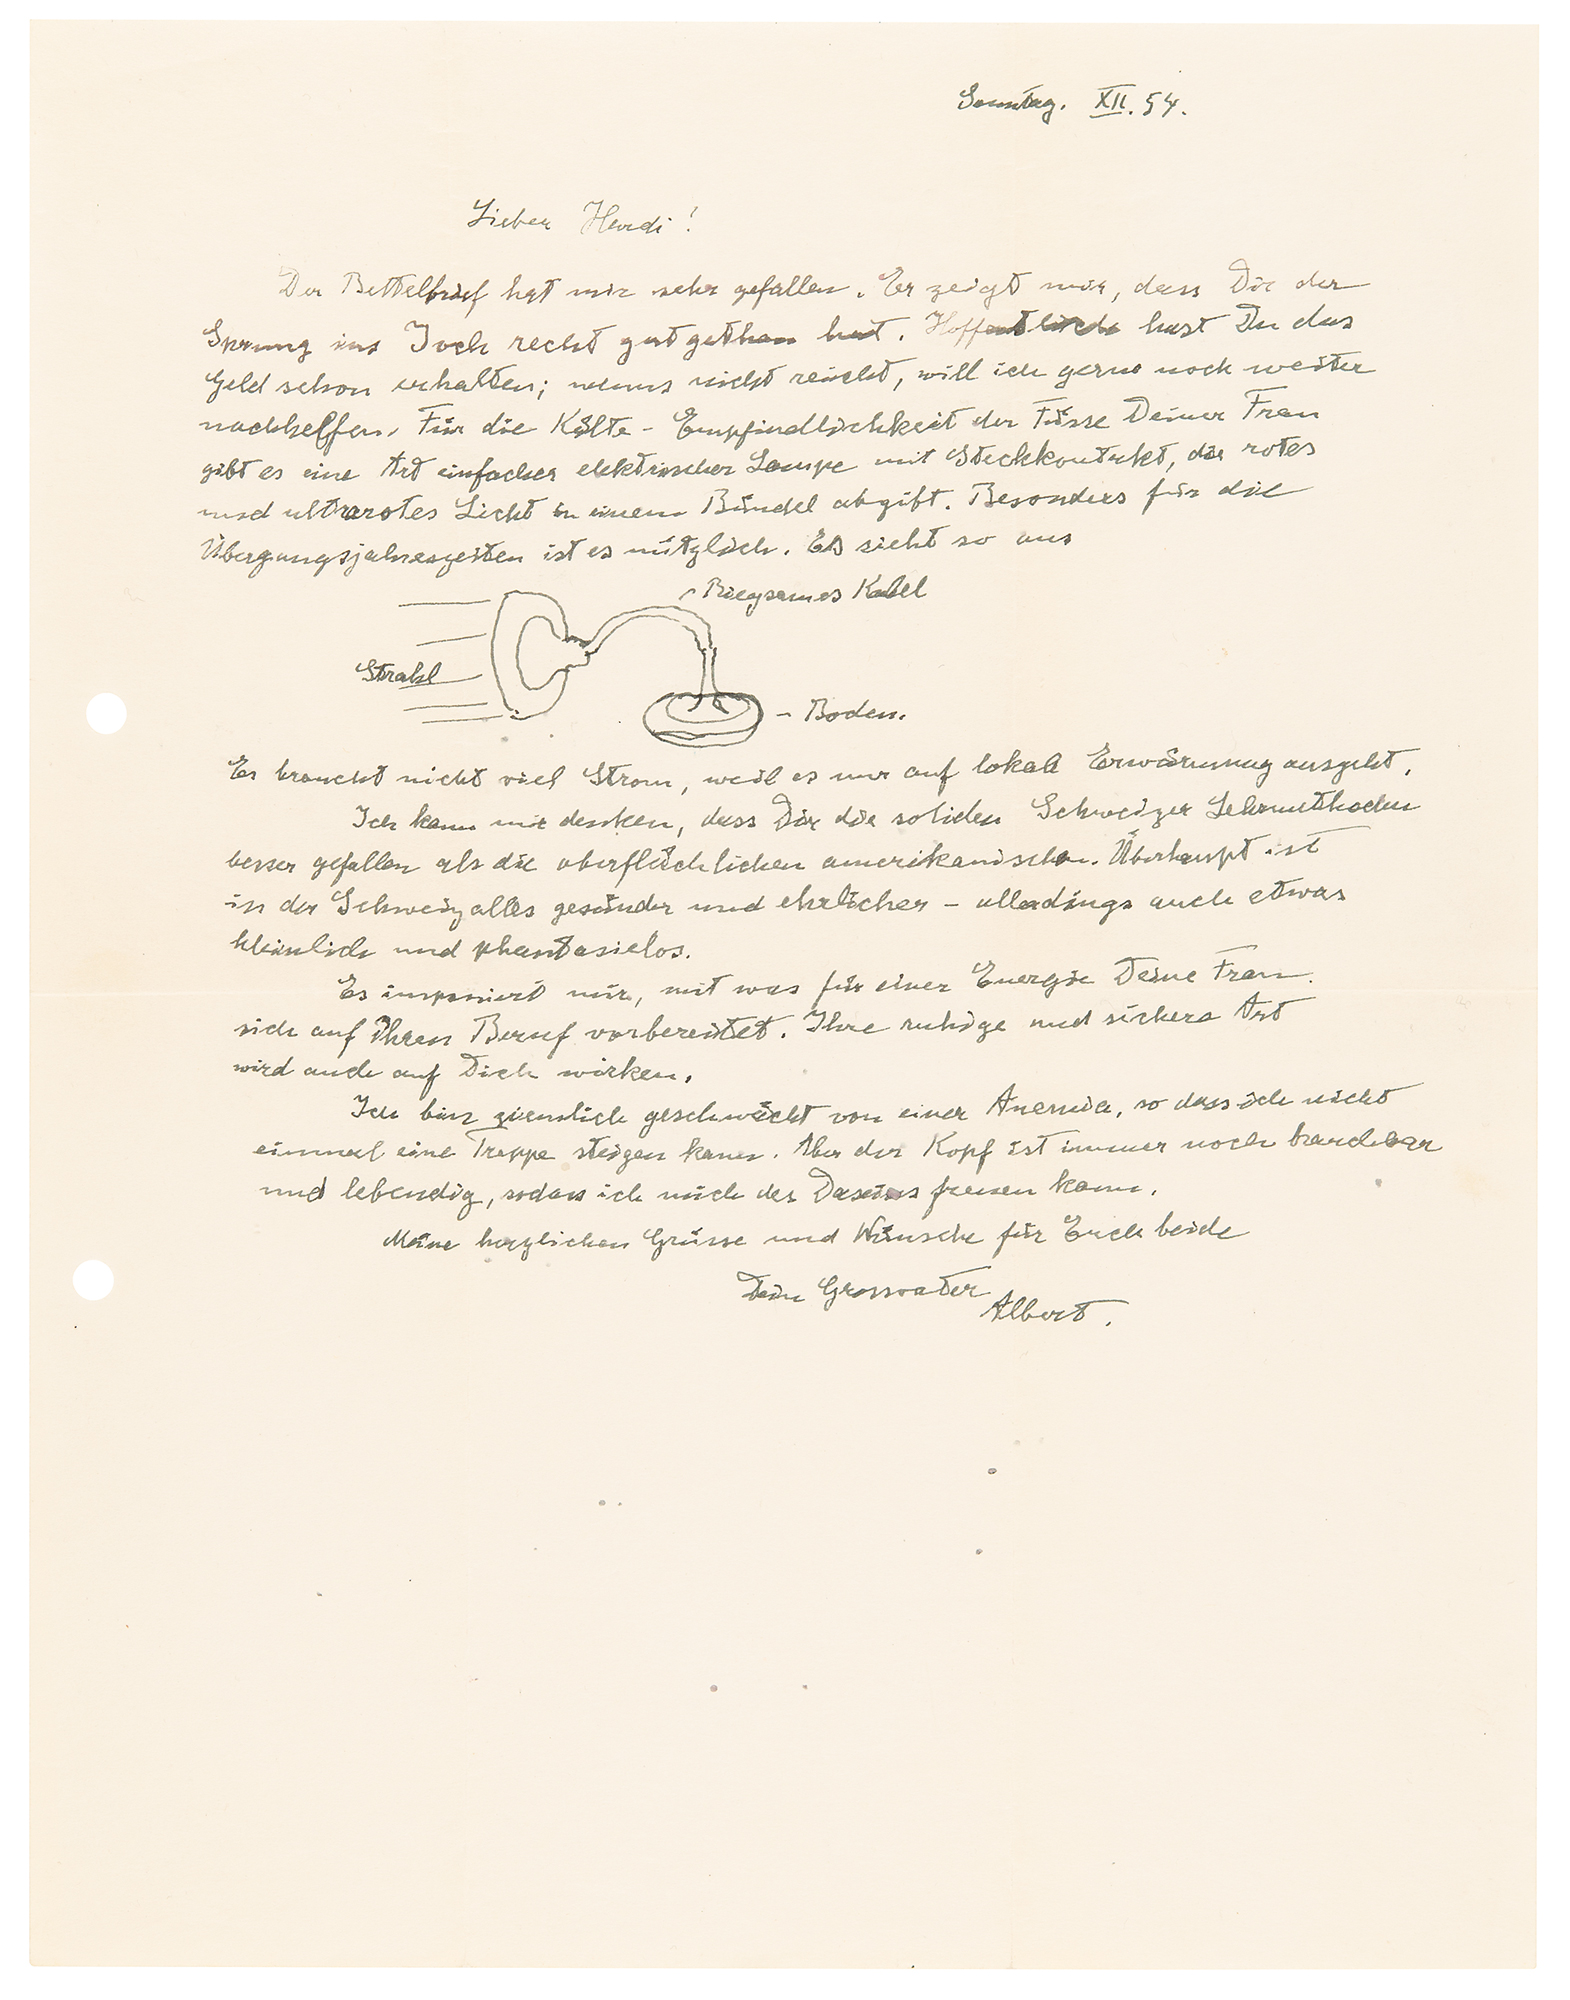 Sonntag. XII. 54.
Lieber Hardi!
Der Bettelbrief hat mir sehr gefallen. Er zeigt mir, dass Dir der
Sprung ins Joch recht gut gethan hat. Hoffentlich hast Du das
Geld schon erhalten; wenns nicht reicht, will ich gerne noch weiter
nachhelfen. Für die Kälte-Empfindlichkeit der Füsse Deiner Frau
gibt es eine Art einfacher elektrischer Lampe mit Steckkontakt, die rotes
und ultrarotes Licht in einem Bündel abgibt. Besonders für die
Übergangsjahreszeiten ist es nützlich. Es sieht so aus
Biegsames Kabel
Strahl
- Boden.
Es braucht nicht viel Strom, weil es nur auf lokale Erwärmung ausgeht.
Ich kann mir denken, dass Dir die soliden Schweizer Lehrmethoden
besser gefallen als die oberflächlichen amerikanischen. Überhaupt ist
in der Schweiz alles gesünder und ehrlicher – allerdings auch etwas
kleinlich und phantasielos.
Es imponiert mir, mit was für einer Energie Deine Frau
sich auf ihren Beruf vorbereitet. Ihre ruhige und sichere Art
wird auch auf Dich wirken.
Ich bin ziemlich geschwächt von einer Anemia, so dass ich nicht
einmal eine Treppe steigen kann. Aber der Kopf ist immer noch brauchbar
und lebendig, sodass ich mich des Daseins freuen kann.
Meine herzlichen Grüsse und Wünsche für Euch beide
Dein Grossvater
Albert.